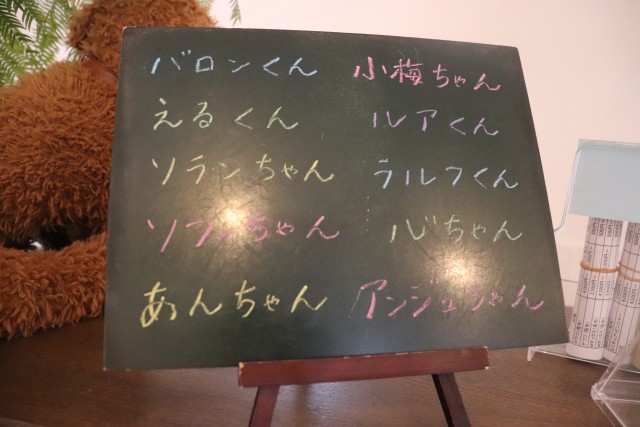 バロンくん 小梅ちゃん
えるくん ルアくん
ソランちゃん ラルフくん
ちゃん ちゃん
あんちゃん アンジュちゃん